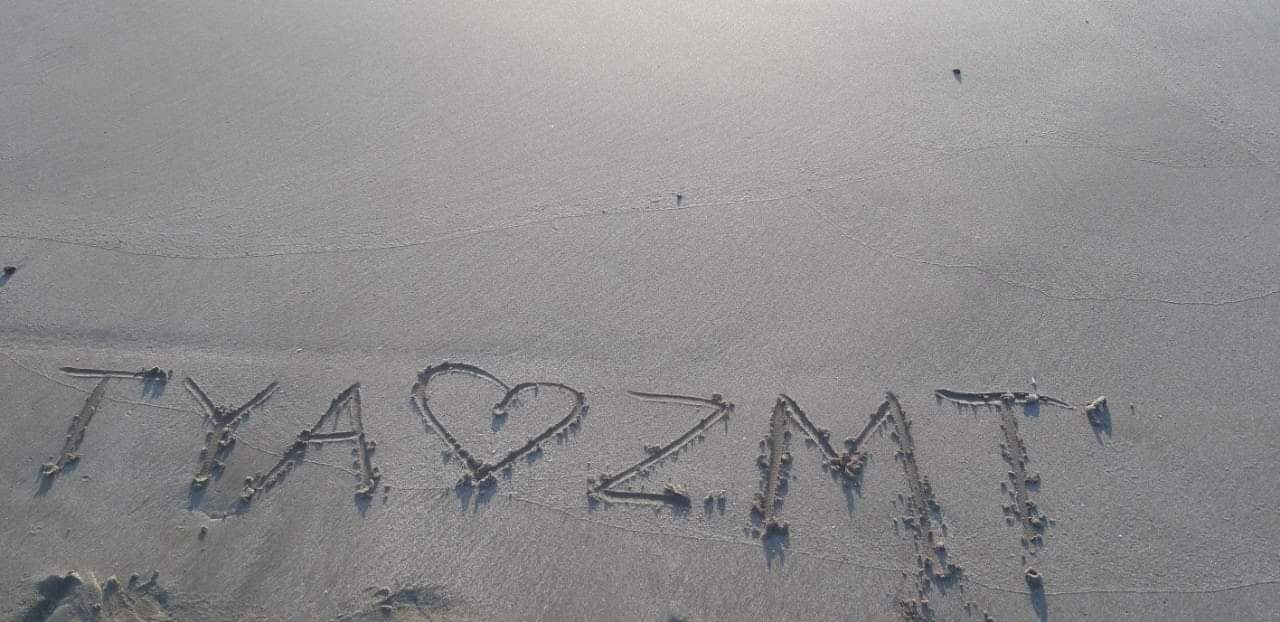 TYA ♡ ZMT